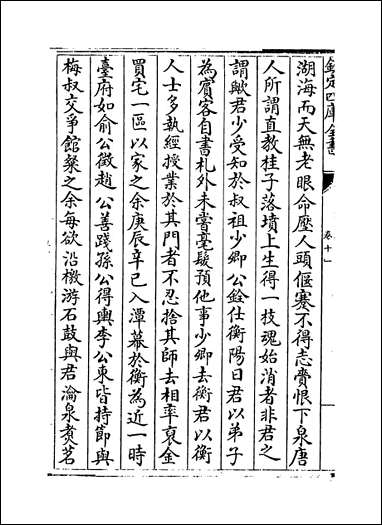 欽定四庫全書
卷十一
湖海而天無老眼命壓人頭偃蹇不得志賫恨下泉唐
人所謂直教桂子落墳上生得一枝魂始消者非君之
謂歟君少受知於叔祖少卿公銓仕衡陽日君以弟子
為賓客自書札外未嘗毫髮預他事少卿去衡君以衡
人士多執經授業於其門者不忍捨其師去相率裒金
買宅一區以家之余庚辰辛巳入潭幕於衡為近一時
臺府如俞公徵趙公善踐孫公得輿李公東皆持節與
梅叔交爭館粲之余每欲沿檄游石鼓與君瀹泉煮茗